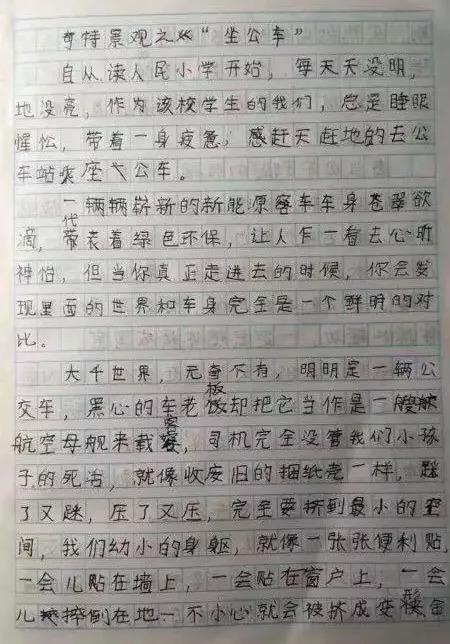 奇特景观之“坐公车”
自从读人民小学开始，每天天没明，
地没亮，作为该校学生的我们，总是睡眼
惺忪，带着一身疲惫，感赶天赶地的去公
车站乘座公车。
一辆辆崭新的新能原客车车身苍翠欲
滴，代表着绿色环保，让人乍一看去心旷
神怡，但当你真正走进去的时候，你会发
现里面的世界和车身完全是一个鲜明的对
比。
大千世界，无奇不有，明明是一辆公
交车，黑心的车老板却把它当作是一艘
航空母舰来载客，司机完全没管我们小孩
子的死治，就像收废旧的捆纸壳一样，跶
了又跶，压了又压，完全要挤到最小的空
间，我们幼小的身躯，就像一张张便利贴，
一会儿贴在墙上，一会贴在窗户上，一会
儿摔倒在地一不小心就会被挤成变形金